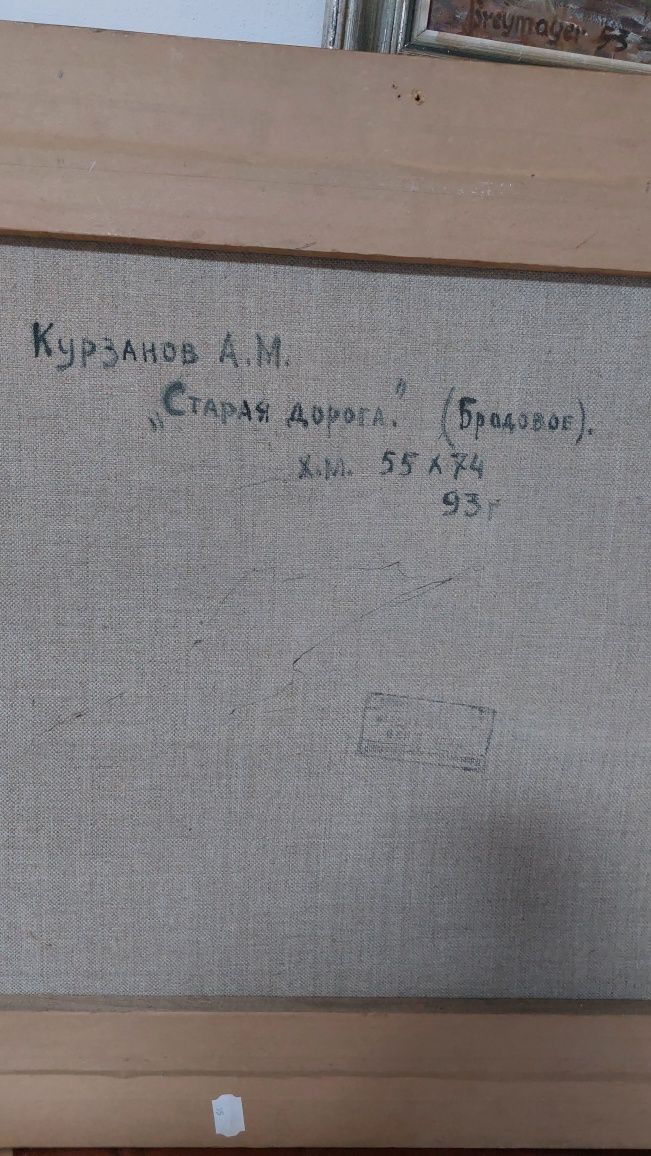 Breymayer 53
Курзанов А.М.
„Старая дорога.” (Бродовое).
х.м. 55 х 74
93г